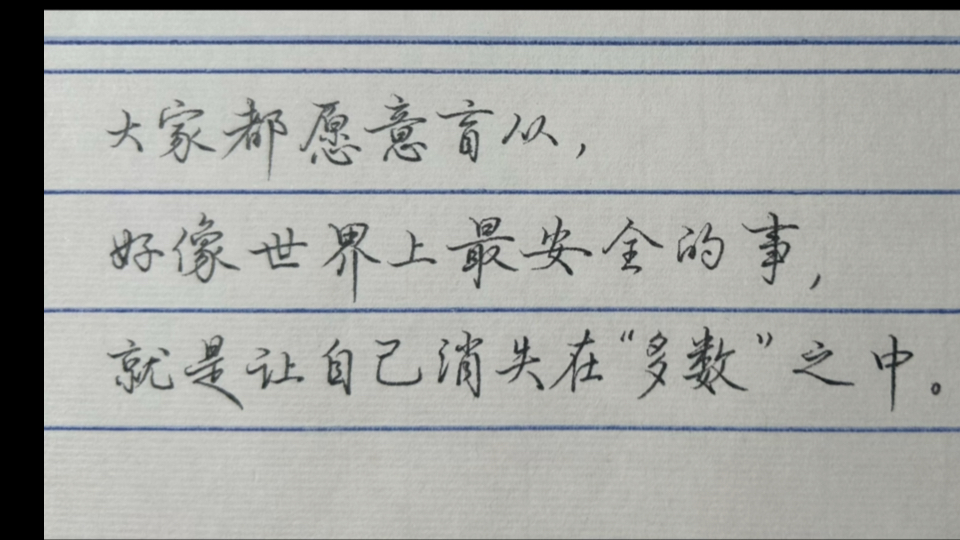 大家都愿意盲从，
好像世界上最安全的事，
就是让自己消失在“多数”之中。